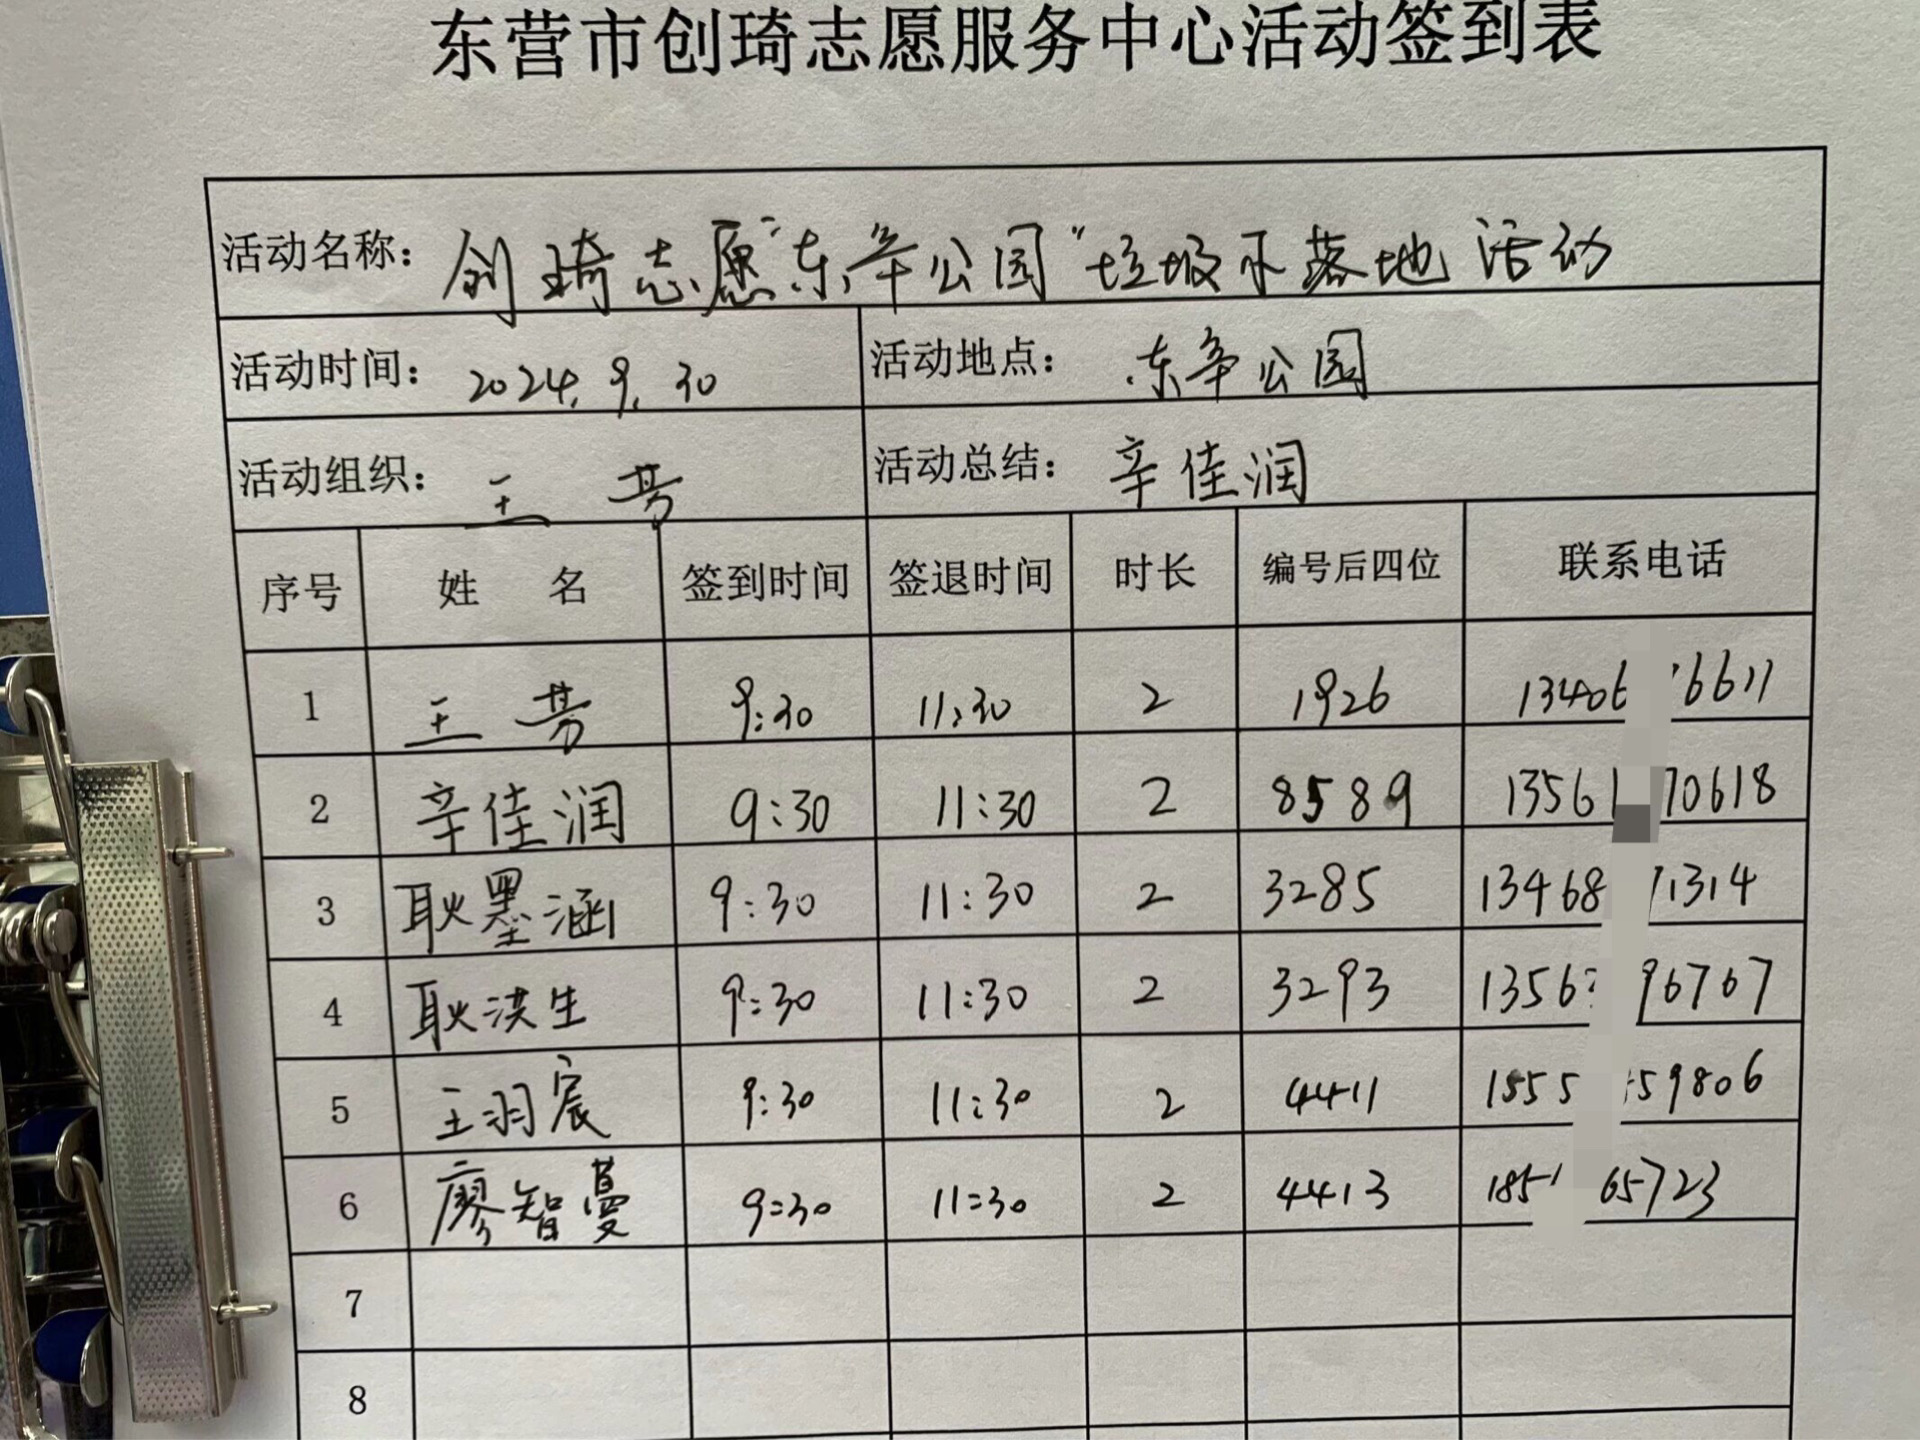 东营市创琦志愿服务中心活动签到表
活动名称： 创琦志愿"东辛公园"垃圾不落地活动
活动时间： 2024.9.30 活动地点： 东辛公园
活动组织： 王芳 活动总结： 辛佳润
序号 姓 名 签到时间 签退时间 时长 编号后四位 联系电话
1 王芳 9:30 11:30 2 1926 13406 6611
2 辛佳润 9:30 11:30 2 8589 13561 70618
3 耿墨涵 9:30 11:30 2 3285 13468 1314
4 耿洪生 9:30 11:30 2 3293 1356 96767
5 王羽宸 9:30 11:30 2 4411 1555 59806
6 廖智蔓 9:30 11:30 2 4413 185 65723
7
8